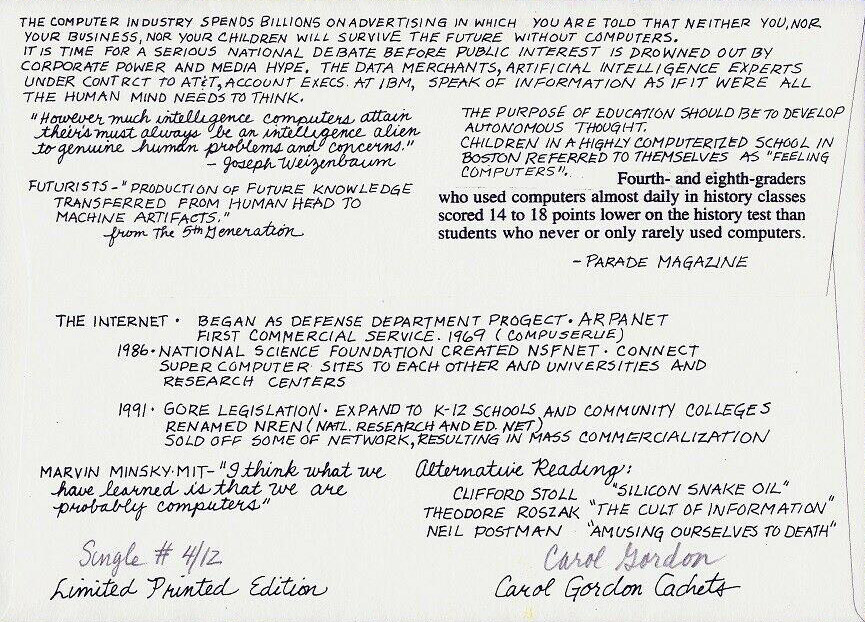 THE COMPUTER INDUSTRY SPENDS BILLIONS ON ADVERTISING IN WHICH YOU ARE TOLD THAT NEITHER YOU, NOR
YOUR BUSINESS, NOR YOUR CHILDREN WILL SURVIVE THE FUTURE WITHOUT COMPUTERS.
IT IS TIME FOR A SERIOUS NATIONAL DEBATE BEFORE PUBLIC INTEREST IS DROWNED OUT BY
CORPORATE POWER AND MEDIA HYPE. THE DATA MERCHANTS, ARTIFICIAL INTELLIGENCE EXPERTS
UNDER CONTRCT TO AT&T, ACCOUNT EXECS. AT IBM, SPEAK OF INFORMATION AS IF IT WERE ALL
THE HUMAN MIND NEEDS TO THINK.
"However much intelligence computers attain
theirs must always be an intelligence alien
to genuine human problems and concerns."
- Joseph Weizenbaum
FUTURISTS - "PRODUCTION OF FUTURE KNOWLEDGE
TRANSFERRED FROM HUMAN HEAD TO
MACHINE ARTIFACTS."
from The 5th Generation
THE PURPOSE OF EDUCATION SHOULD BE TO DEVELOP
AUTONOMOUS THOUGHT.
CHILDREN IN A HIGHLY COMPUTERIZED SCHOOL IN
BOSTON REFERRED TO THEMSELVES AS "FEELING
COMPUTERS".
Fourth- and eighth-graders
who used computers almost daily in history classes
scored 14 to 18 points lower on the history test than
students who never or only rarely used computers.
- PARADE MAGAZINE
THE INTERNET · BEGAN AS DEFENSE DEPARTMENT PROGECT · ARPANET
FIRST COMMERCIAL SERVICE. 1969 (COMPUSERVE)
1986 · NATIONAL SCIENCE FOUNDATION CREATED NSFNET · CONNECT
SUPER COMPUTER SITES TO EACH OTHER AND UNIVERSITIES AND
RESEARCH CENTERS
1991 · GORE LEGISLATION · EXPAND TO K-12 SCHOOLS AND COMMUNITY COLLEGES
RENAMED NREN (NATL. RESEARCH AND ED. NET)
SOLD OFF SOME OF NETWORK, RESULTING IN MASS COMMERCIALIZATION
MARVIN MINSKY · MIT - "I think what we
have learned is that we are
probably computers"
Alternative Reading:
CLIFFORD STOLL "SILICON SNAKE OIL"
THEODORE ROSZAK "THE CULT OF INFORMATION"
NEIL POSTMAN "AMUSING OURSELVES TO DEATH"
Single # 4/12
Limited Printed Edition
Carol Gordon
Carol Gordon Cachets